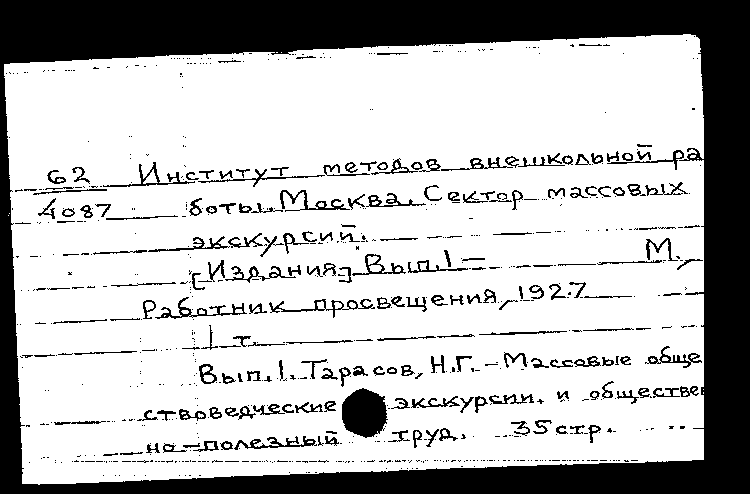 62 Институт методов внешкольной ра
4087 боты. Москва. Сектор массовых
экскурсий.
[Издания] Вып.1 — М.,
Работник просвещения, 1927
1 т.
Вып.1. Тарасов, Н.Г. - Массовые обще
ствоведческие экскурсии. и обществен
но-полезный труд. 35 стр. ..